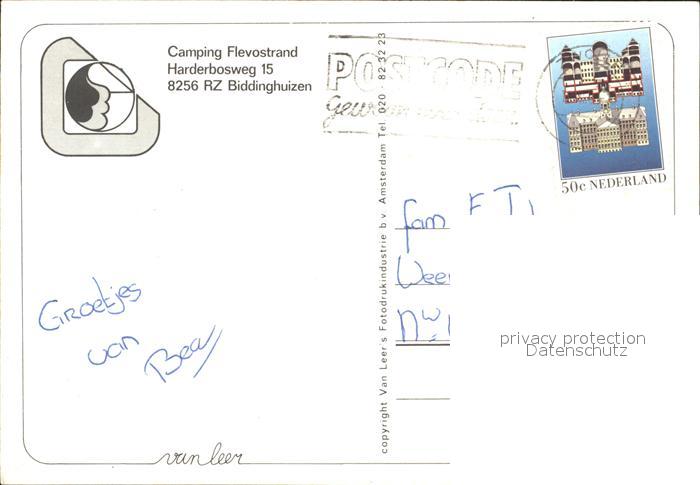 Camping Flevostrand
Harderbosweg 15
8256 RZ Biddinghuizen
POSTCODE
50c NEDERLAND
copyright Van Leer's Fotodrukindustrie b.v. Amsterdam Tel. 020 - 82 32 23
fam F
Groetjes
van
Bea
privacy protection
Datenschutz
van leer